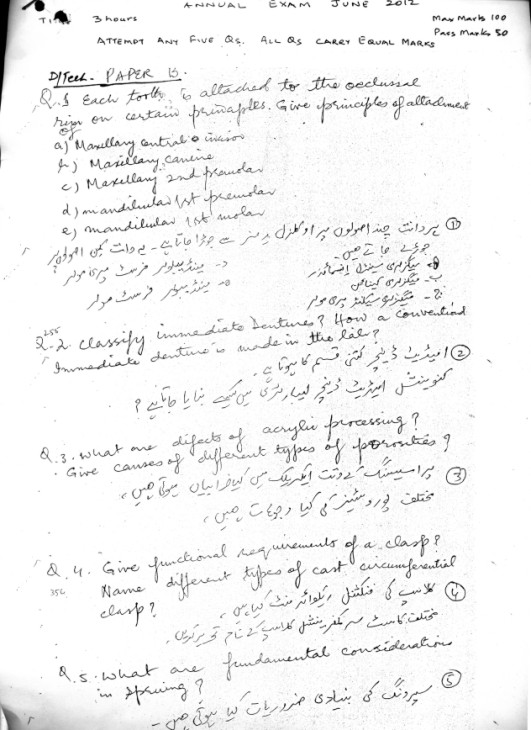 ANNUAL EXAM JUNE 2012
3 hours
Max Marks 100
Pass Marks 50
ATTEMPT ANY FIVE QS. ALL QS CARRY EQUAL MARKS
D/Tech. PAPER B.
Q.1 Each tooth is attached to the occlussal
rim on certain principles. Give principles of attachment
of
a) Maxillary central incisor
b) Maxillary canine
c) Maxillary 2nd premolar
d) mandibular 1st premolar
e) mandibular 1st molar
① ہر دانت چند اصولوں پر اوکلزل رمز سے جوڑا جاتا ہے۔ یہ دانت کن اصولوں پر
جوڑے جاتے ہیں۔
د۔ مینڈیبولر فرسٹ پری مولر
ب۔ میگزلری کینائن
ہ۔ مینڈیبولر فرسٹ مولر
ج۔ میگزلری سیکنڈ پری مولر
255
Q.2. Classify immediate dentures? How a conventional
Immediate denture is made in the lab?
② امیڈیٹ ڈینچر کتنی قسم کا ہوتا ہے۔
کنوینشنل امیڈیٹ ڈینچر لیبارٹری میں کیسے بنایا جاتا ہے؟
Q.3. What are difects of acrylic processing?
Give causes of different types of porosities?
③ پراسیسنگ کے وقت ایکریلک میں کیا خرابیاں ہوتی ہیں۔
مختلف پوروسٹیز کی کیا وجوہات ہیں۔
Q.4. Give functional requirements of a clasp?
356 Name different types of cast circumferential
clasp?
④ کلاسپ کی فنکشنل ریکوائرمنٹ کیا ہیں۔
مختلف کاسٹ سرکمفرینشل کلاسپ کے نام تحریر کریں۔
Q.5. What are fundamental considerations
in spruing?
⑤ سپرونگ کی بنیادی ضروریات کیا ہوتی ہیں۔